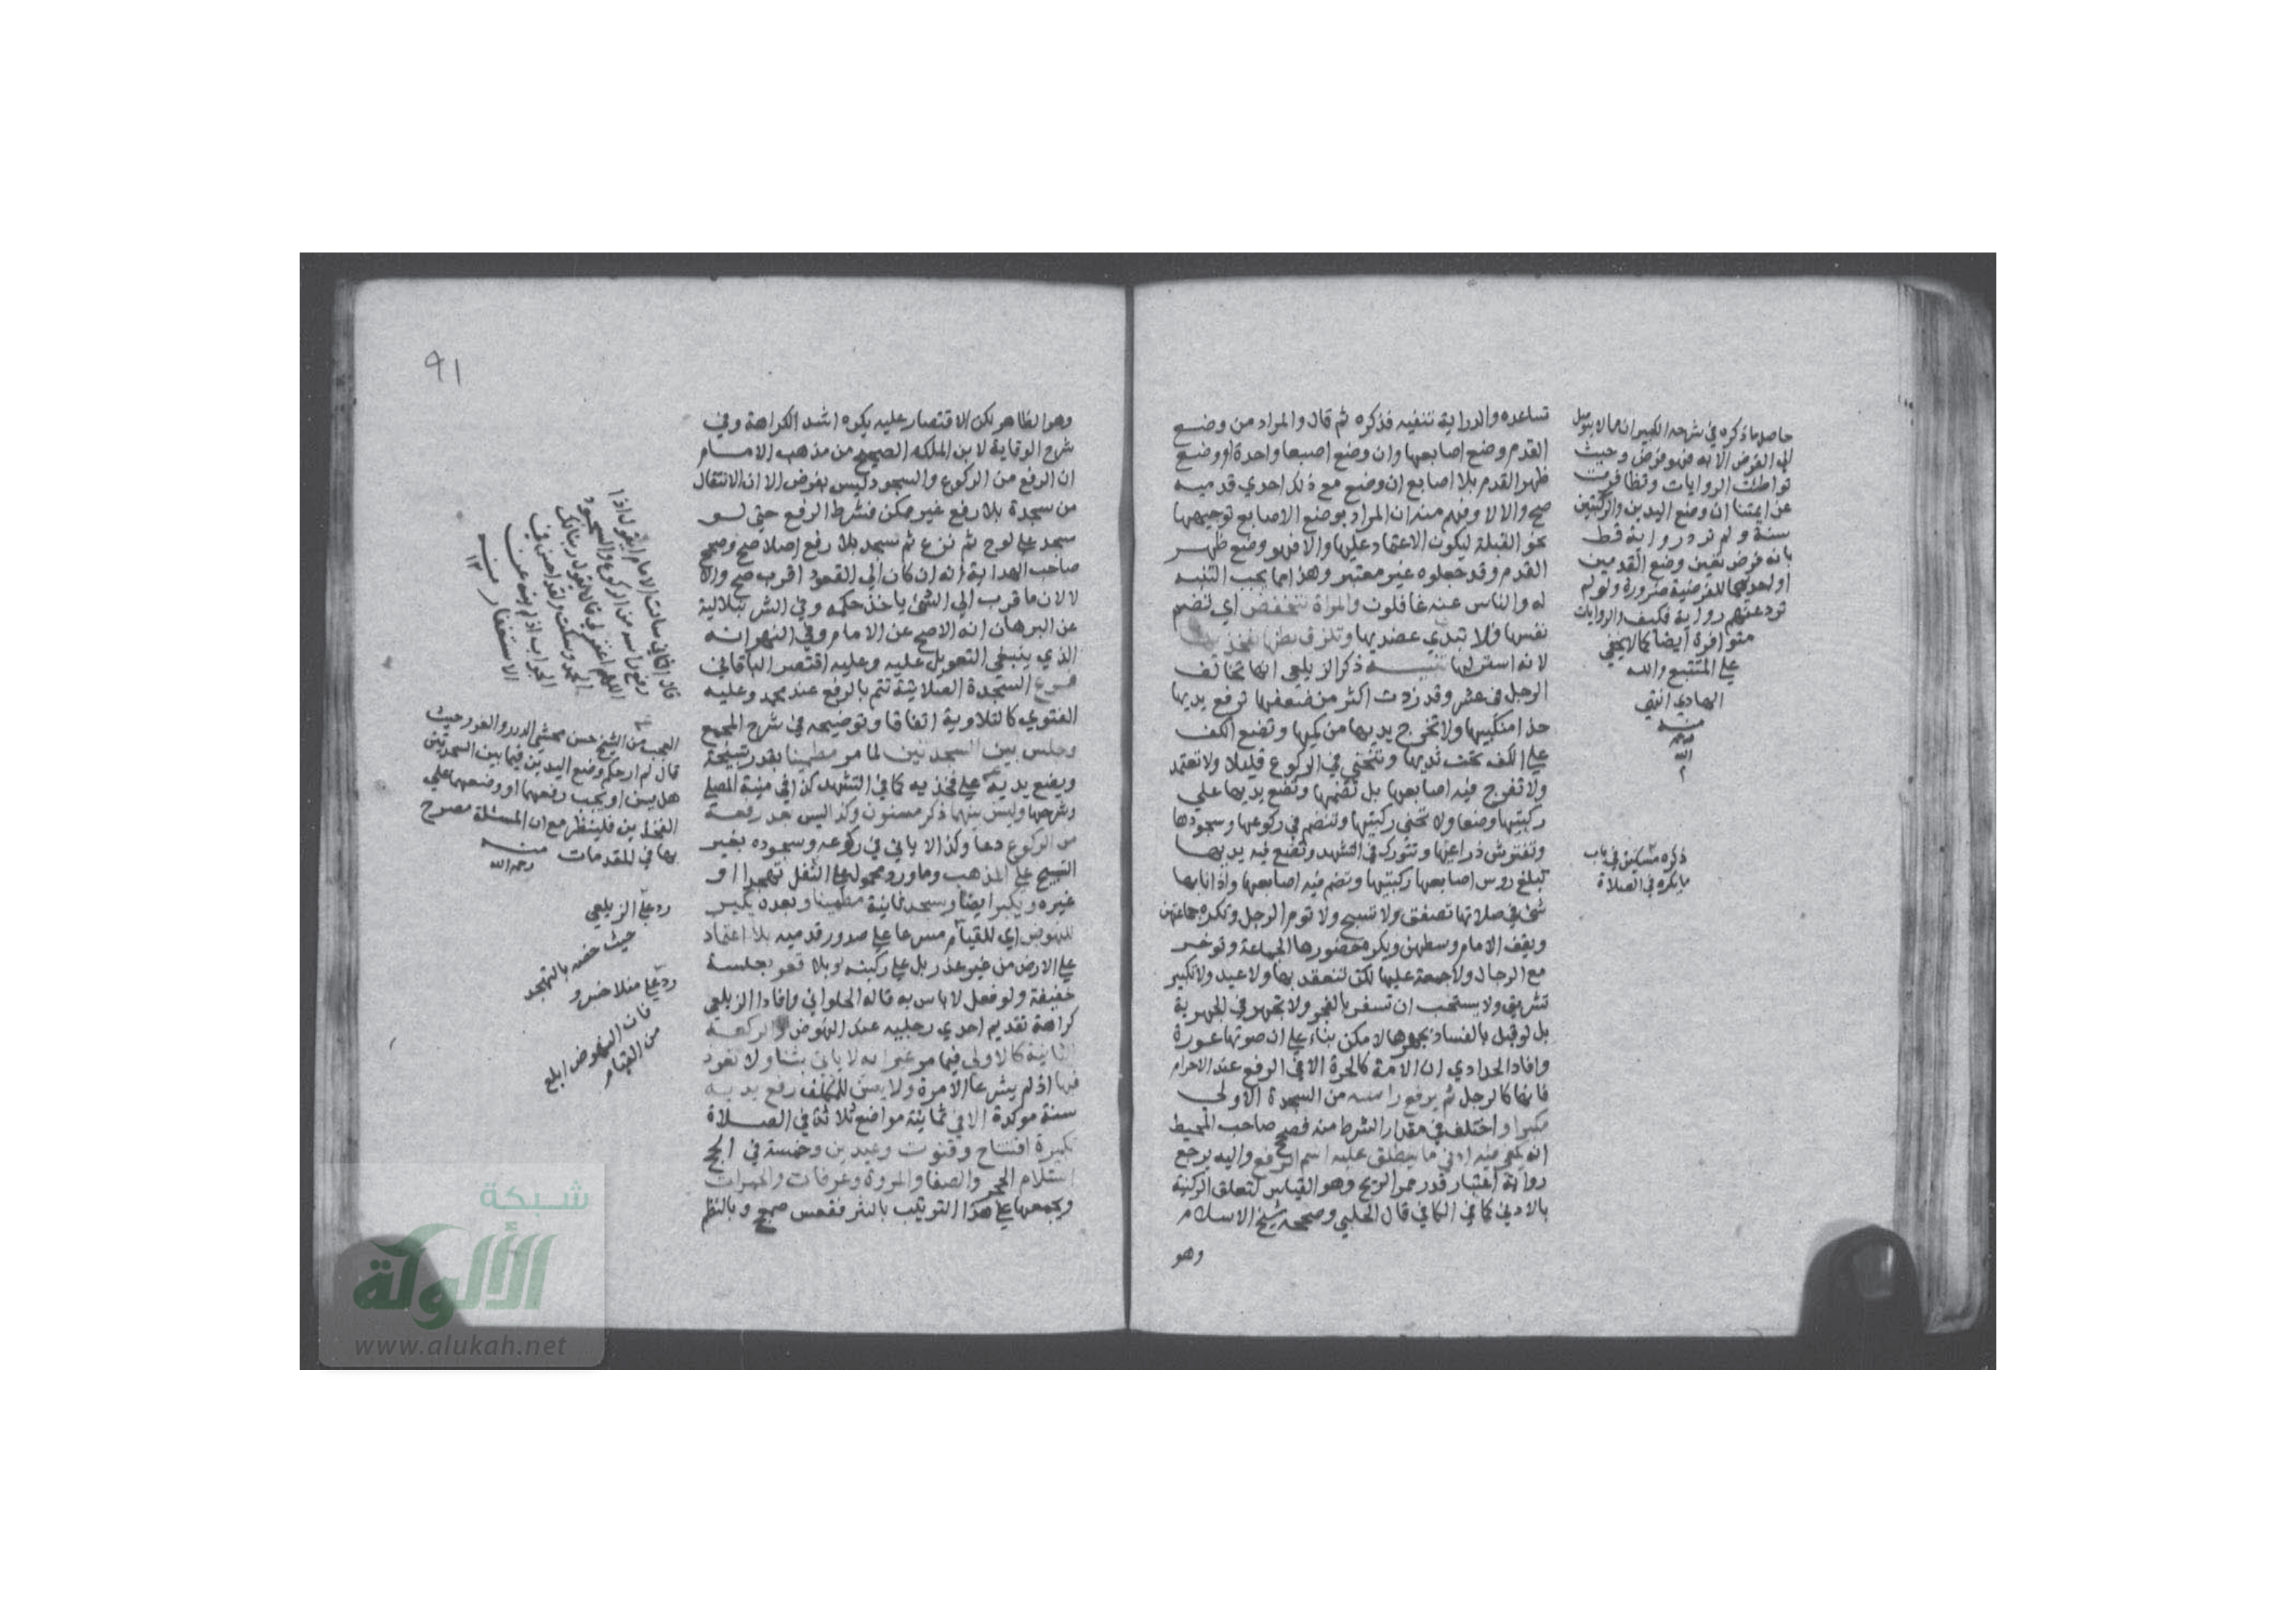 تساعده والدراية تنفيه فذكره ثم قال والمراد من وضع
القدم وضع اصابعها وان وضع اصبعا واحدة او وضع
ظهر القدم بلا اصابع ان وضع مع ذلك احدي قدميه
صح والا لا وفهم منه ان المراد بوضع الاصابع توجيهها
نحو القبلة ليكون الاعتماد عليها والا فهو وضع ظهر
القدم وقد جعلوه غير معتبر وهذا مما يجب التنبه
له والناس عنه غافلون والمراة تنخفض اي تضم
نفسها فلا تبدي عضديها وتلزق بطنها بفخذيها
لانه استر لها تنبيه ذكر الزيلعي انها تخالف
الرجل في عشر وقد زدت اكثر من ضعفها ترفع يديها
حذا منكبيها ولا تخرج يديها من كميها وتضع الكف
علي الكف تحت ثديها وتنحني في الركوع قليلا ولا تعتمد
ولا تفرج فيه اصابعها بل تضمها وتضع يديها علي
ركبتيها وضعا ولا تحني ركبتيها وتنضم في ركوعها وسجودها
وتفترش ذراعيها وتتورك في التشهد وتضع فيه يديها
تبلغ روس اصابعها ركبتيها وتضم فيه اصابعها واذا نابها
شئ في صلاتها تصفق ولا تسبح ولا توم الرجل وتكره جماعتهن
ويقف الامام وسطهن ويكره حضورها الجماعة وتوخر
مع الرجال ولا جمعة عليها لكن تنعقد بها ولا عيد ولا تكبير
تشريق ولا يستحب ان تسفر بالفجر ولا تجهر في الجهرية
بل لو قيل بالفساد بجهرها لامكن بناء علي ان صوتها عورة
وافاد الحدادي ان الامة كالحرة الا في الرفع عند الاحرام
فانها كالرجل ثم يرفع راسه من السجدة الاولي
مكبرا واختلف في مقدار الشرط منه فصحح صاحب المحيط
انه يكفي فيه ادني ما ينطلق عليه اسم الرفع واليه يرجع
رواية اعتبار قدر ممر الريح وهو القياس لتعلق الركنية
بالادني كما في الكافي قال الحلبي وصححه شيخ الاسلام
وهو
حاصل ما ذكره في شرحه الكبير ان ما لا يتوصل
الي الفرض الا به فهو فرض وحيث
تواطئت الروايات وتظافرت
عن ايمتنا ان وضع اليدين والركبتين
سنة ولم ترد رواية قط
بانه فرض تعين وضع القدمين
او احديهما للفرضية ضرورة ولو لم
ترد عنهم رواية فكيف والروايات
متوافرة ايضا كما لا يخفي
علي المتتبع والله
الهادي انتهي
منه
رحمه
الله
ذكره مسكين في باب
ما يكره في الصلاة
91
وهو الظاهر لكن الاقتصار عليه يكره اشد الكراهة وفي
شرح الوقاية لابن الملك الصحيح من مذهب الامام
ان الرفع من الركوع والسجود ليس بفرض الا ان الانتقال
من سجدة بلا رفع غير ممكن فشرط الرفع حتي لو
سجد علي لوح ثم نزع ثم سجد بلا رفع اصلا صح وصحح
صاحب الهداية انه ان كان الي القعود اقرب صح والا
لا لان ما قرب الي الشئ ياخذ حكمه وفي الشرنبلالية
عن البرهان انه الاصح عن الامام وفي النهر انه
الذي ينبغي التعويل عليه وعليه اقتصر الباقاني
فرع السجدة الصلاتية تتم بالرفع عند محمد وعليه
الفتوي كالتلاوية اتفاقا وتوضيحه في شرح المجمع
وجلس بين السجدتين لما مر مطمئنا بقدر تسبيحة
ويضع يديه علي فخذيه كما في التشهد كذا في منية المصلي
وشرحها وليس بينهما ذكر مسنون وكذا ليس بعد رفعه
من الركوع دعا وكذا لا ياتي في ركوعه وسجوده بغير
التسبيح علي المذهب وما ورد محمول علي النفل تهجدا او
غيره ويكبر ايضا ويسجد ثانية مطمئنا وبعده يكبر
للنهوض اي للقيام مسرعا علي صدور قدميه بلا اعتماد
علي الارض من غير عذر بل علي ركبتيه وبلا قعود جلسة
خفيفة ولو فعل لا باس به قاله الحلواني وافاد الزيلعي
كراهة تقديم احدي رجليه عند النهوض والركعة
الثانية كالاولي فيما مر غير انه لا ياتي بثنا ولا تعوذ
فيها اذ لم يشرعا الا مرة ولا يسن للمكلف رفع يديه
سنة موكدة الا في ثمانية مواضع ثلاثة في الصلاة
تكبيرة افتتاح وقنوت وعيدين وخمسة في الحج
استلام الحجر والصفا والمروة وعرفات والجمرات
ويجمعها علي هذا الترتيب بالنثر فقعس صمعج وبالنظم
قال الثاني سالت الامام ايقول اذا
رفع راسه من الركوع والسجود
اللهم اغفر لي قال يقول ربنا لك
الحمد وسكت ولقد احسن في
الجواب اذ لم ينه عن
الاستغفار منه
١٢
العجب من الشيخ حسن محشي الدرر والغرر حيث
قال لم ار حكم وضع اليدين فيما بين السجدتين
هل يسن او يجب رفعهما او وضعهما علي
الفخذين فلينظر مع ان المسئلة مصرح
بها في المقدمات منه
رحمه الله
رد علي الزيلعي
حيث خصه بالتهجد
رد علي منلا خسرو
فان النهوض ابلغ
من القيام
شبكة
الألوكة
www.alukah.net